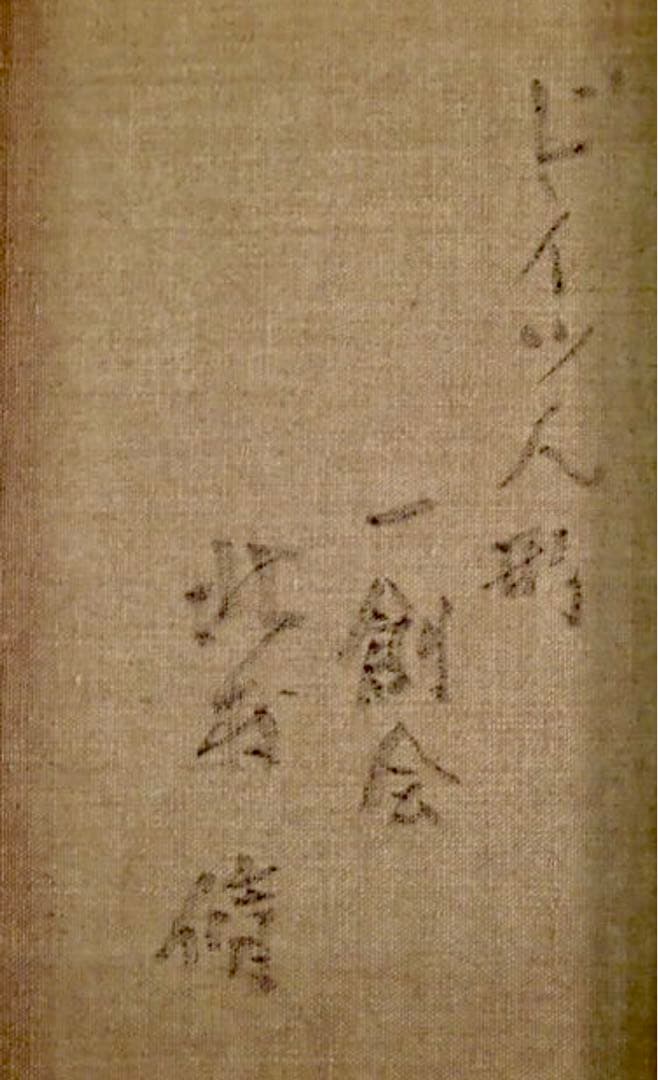 ドイツ人形
一創会
北村 脩